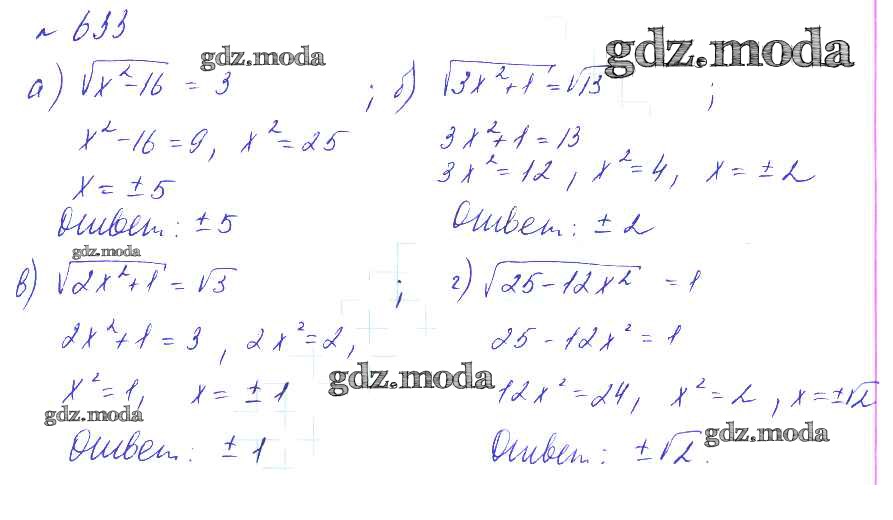 № 633
gdz.moda
gdz.moda
а) √x²-16 = 3 ;
x²-16=9, x²=25
x = ±5
Ответ: ±5
б) √3x²+1 = √13 ;
3x²+1=13
3x²=12, x²=4, x = ±2
Ответ: ±2
gdz.moda
в) √2x²+1 = √3 ;
2x²+1 = 3, 2x²=2,
x²=1, x = ±1
gdz.moda
Ответ: ±1
г) √25-12x² = 1
25-12x²=1
gdz.moda
12x²=24, x²=2, x=±√2
gdz.moda
Ответ: ±√2.